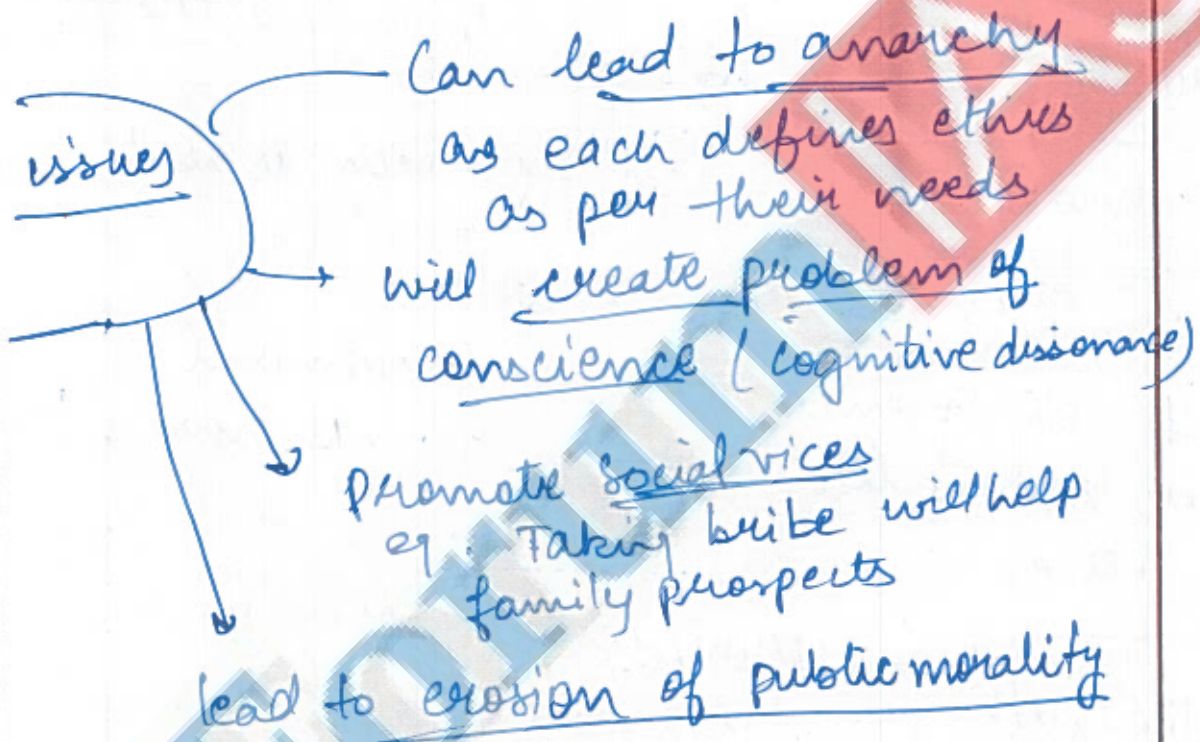 issues
Can lead to anarchy
as each defines ethics
as per their needs
will create problem of
conscience (cognitive dissonance)
Promote social vices
eg. Taking bribe will help
family prospects
lead to erosion of public morality
Forum IAS